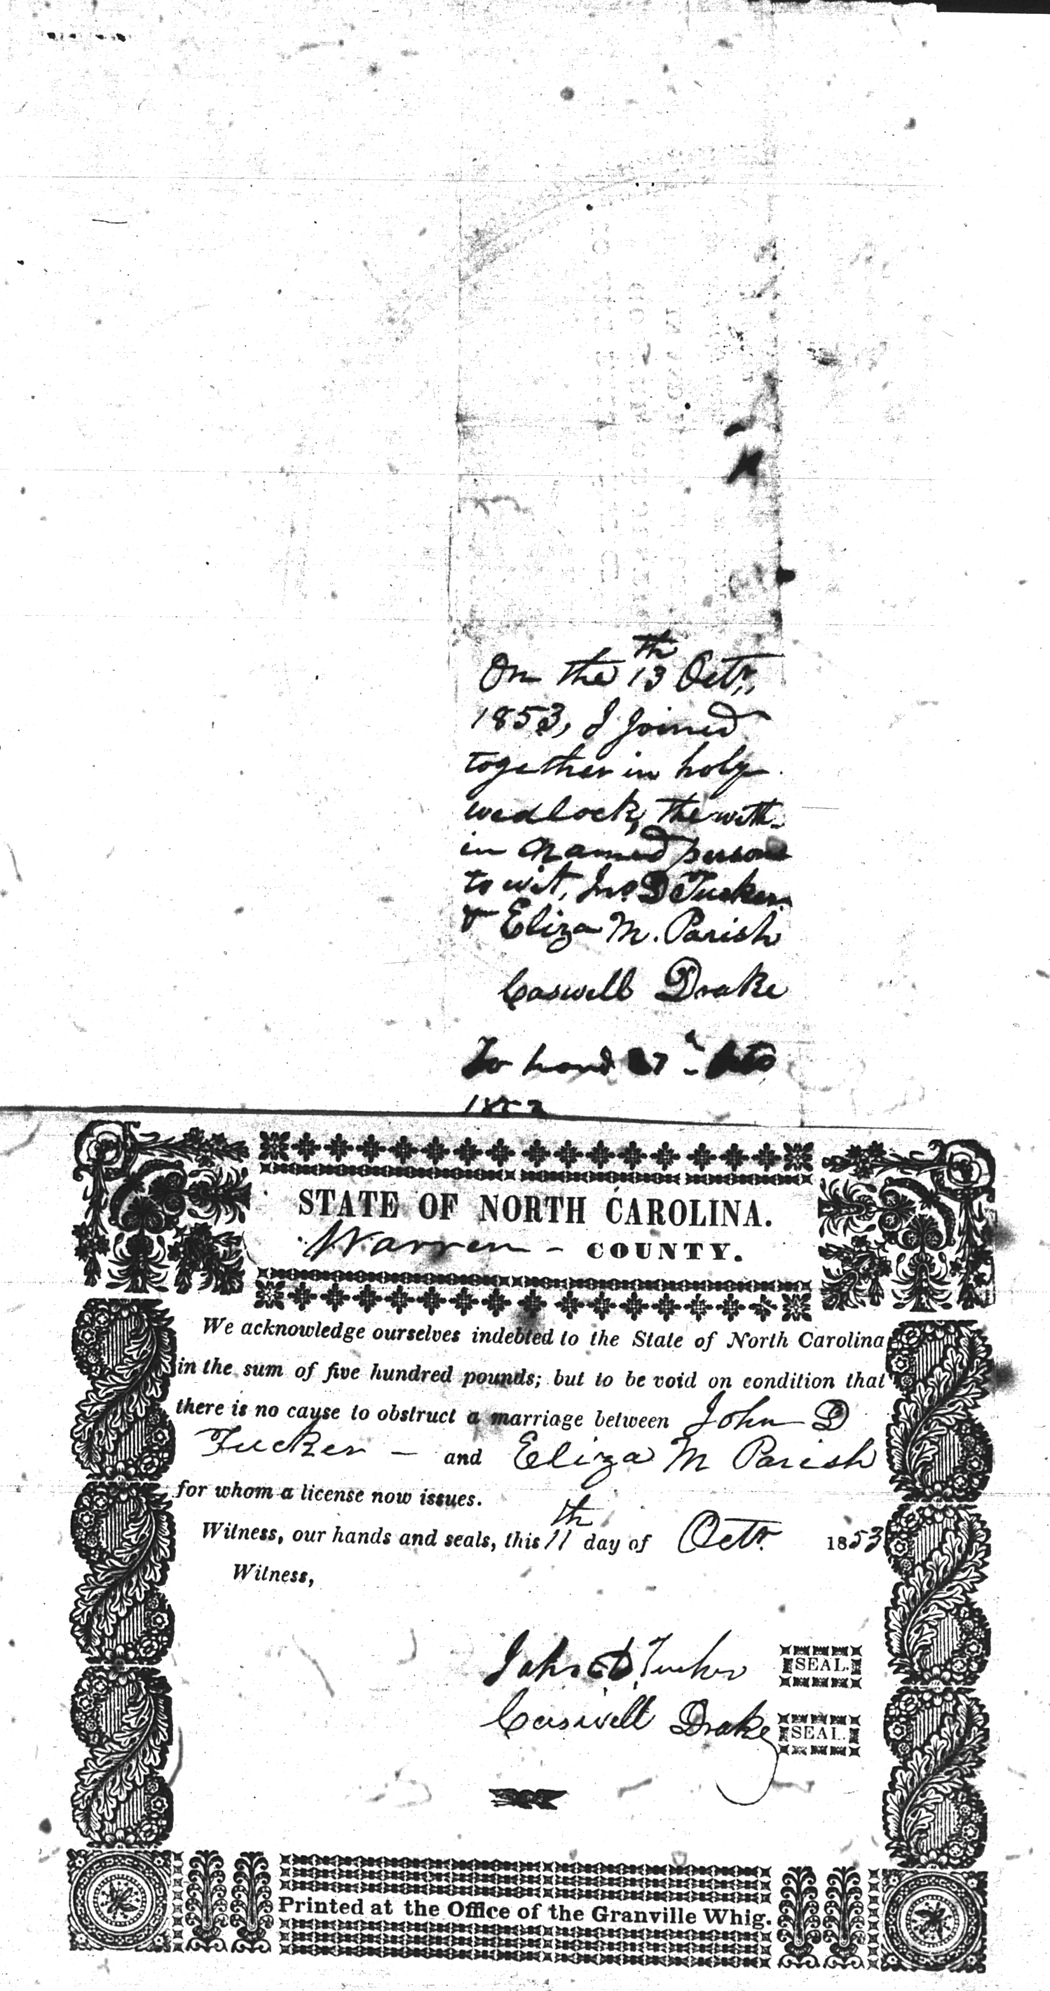 On the 13th Octr,
1853, I joined
together in holy
wedlock, the with-
in named persons
to wit, Jno. D Tucker
& Eliza M. Parish
Caswell Drake
To hand 27th
STATE OF NORTH CAROLINA.
Warren - COUNTY.
We acknowledge ourselves indebted to the State of North Carolina
in the sum of five hundred pounds; but to be void on condition that
there is no cause to obstruct a marriage between John D
Tucker - and Eliza M Parish
for whom a license now issues.
Witness, our hands and seals, this 11th day of Octr. 1853
Witness,
John D. Tucker SEAL.
Caswell Drake SEAL.
Printed at the Office of the Granville Whig.